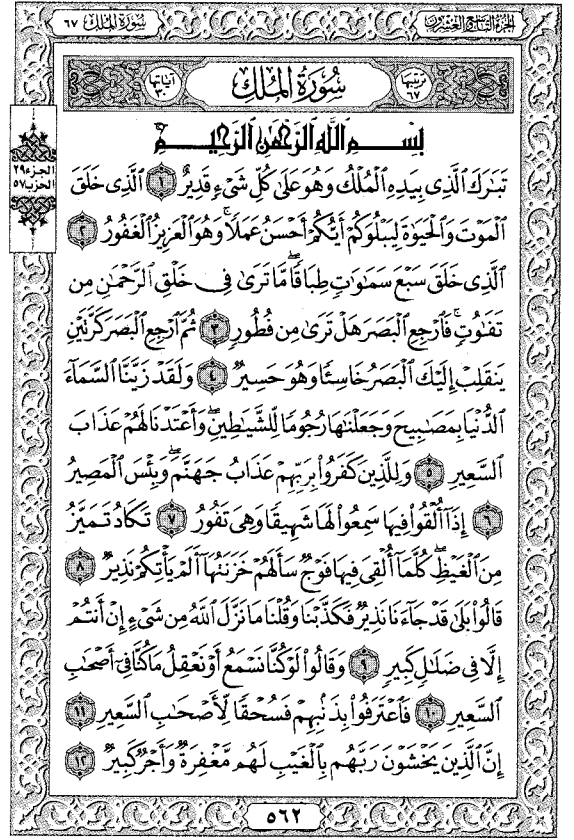 الجزء التاسع والعشرون
سورة الملك ٦٧
ترتيبها ٦٧
سُورَةُ المُلْكِ
آياتها ٣٠
الجزء ٢٩
الحزب ٥٧
بِسْمِ اللَّهِ الرَّحْمَٰنِ الرَّحِيمِ
تَبَارَكَ الَّذِي بِيَدِهِ الْمُلْكُ وَهُوَ عَلَىٰ كُلِّ شَيْءٍ قَدِيرٌ ١ الَّذِي خَلَقَ
الْمَوْتَ وَالْحَيَوٰةَ لِيَبْلُوَكُمْ أَيُّكُمْ أَحْسَنُ عَمَلًا ۚ وَهُوَ الْعَزِيزُ الْغَفُورُ ٢
الَّذِي خَلَقَ سَبْعَ سَمَٰوَٰتٍ طِبَاقًا ۖ مَّا تَرَىٰ فِي خَلْقِ الرَّحْمَٰنِ مِن
تَفَٰوُتٍ ۖ فَارْجِعِ الْبَصَرَ هَلْ تَرَىٰ مِن فُطُورٍ ٣ ثُمَّ ارْجِعِ الْبَصَرَ كَرَّتَيْنِ
يَنقَلِبْ إِلَيْكَ الْبَصَرُ خَاسِئًا وَهُوَ حَسِيرٌ ٤ وَلَقَدْ زَيَّنَّا السَّمَاءَ
الدُّنْيَا بِمَصَٰبِيحَ وَجَعَلْنَٰهَا رُجُومًا لِّلشَّيَٰطِينِ ۖ وَأَعْتَدْنَا لَهُمْ عَذَابَ
السَّعِيرِ ٥ وَلِلَّذِينَ كَفَرُوا بِرَبِّهِمْ عَذَابُ جَهَنَّمَ ۖ وَبِئْسَ الْمَصِيرُ
٦ إِذَا أُلْقُوا فِيهَا سَمِعُوا لَهَا شَهِيقًا وَهِيَ تَفُورُ ٧ تَكَادُ تَمَيَّزُ
مِنَ الْغَيْظِ ۖ كُلَّمَا أُلْقِيَ فِيهَا فَوْجٌ سَأَلَهُمْ خَزَنَتُهَا أَلَمْ يَأْتِكُمْ نَذِيرٌ ٨
قَالُوا بَلَىٰ قَدْ جَاءَنَا نَذِيرٌ فَكَذَّبْنَا وَقُلْنَا مَا نَزَّلَ اللَّهُ مِن شَيْءٍ إِنْ أَنتُمْ
إِلَّا فِي ضَلَٰلٍ كَبِيرٍ ٩ وَقَالُوا لَوْ كُنَّا نَسْمَعُ أَوْ نَعْقِلُ مَا كُنَّا فِي أَصْحَٰبِ
السَّعِيرِ ١٠ فَاعْتَرَفُوا بِذَنبِهِمْ فَسُحْقًا لِّأَصْحَٰبِ السَّعِيرِ ١١
إِنَّ الَّذِينَ يَخْشَوْنَ رَبَّهُم بِالْغَيْبِ لَهُم مَّغْفِرَةٌ وَأَجْرٌ كَبِيرٌ ١٢
٥٦٢